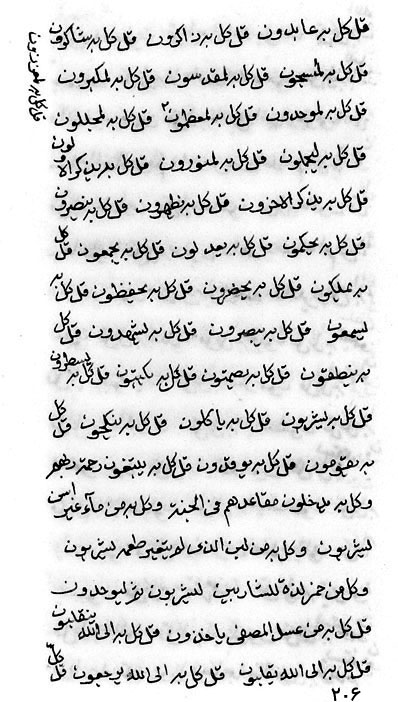 قل كل به عابدون قل كل به ذاكرون قل كل به شاكرون
قل كل به لمسبحون قل كل به لمقدسون قل كل به لمكبرون
قل كل به لموحدون قل كل به لمعظمون قل كل به لمجللون
قل كل به ليجملون قل كل به لمنورون قل كل به يدين كل الاولون
قل كل به يدين كل الاخرون قل كل به يظهرون قل كل به ينصرون
قل كل به يحكمون قل كل به يعدلون قل كل به يجمعون قل كل
به يملكون قل كل به يحضرون قل كل به يحفظون قل كل به
يسمعون قل كل به يبصرون قل كل به يشهدون قل كل
به ينطقون قل كل به يصمتون قل كل به يكتبون قل كل به يسطرون
قل كل به يشربون قل كل به ياكلون قل كل به ينكحون قل كل
به يقومون قل كل به يوقدون قل كل به يبتغون رحمة ربهم
وكل به يدخلون مقاعدهم في الجنة وكل به من مآء غير اسن
يشربون وكل به من لبن الذى لم يتغير طعمه يشربون
وكل من خمر لذة للشاربين يشربون ثم ليوحدون
قل كل به من عسل المصفى ياخذون قل كل به الى الله ينقلبون
قل كل به الى الله يقلبون قل كل به الى الله يرجعون قل كل
٢٠۶